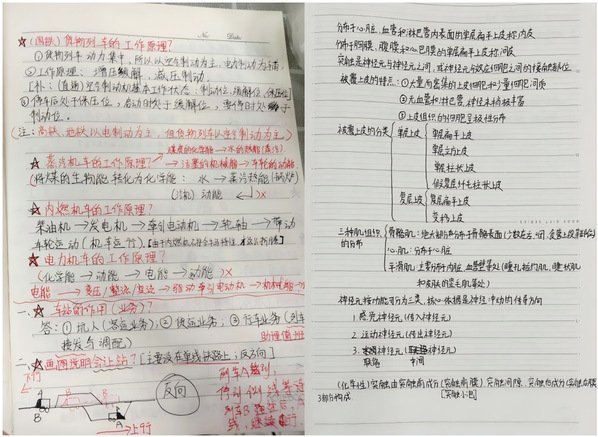 No.
Date
☆(国铁)货物列车的工作原理?
①货物列车动力集中,所以以空气制动为主,电力制动为辅。
②工作原理:增压缓解,减压制动。
[补:(直通)空气制动机基本工作状态:制动位、缓解位、保压位]
③停车后处于保压位,启动时处于缓解位,要停时处于
制动位。
(注:高铁、地铁以电制动为主,但货物列车以空气制动为主。)
煤炭的化学能→水的热能(蒸汽)
☆蒸汽机车的工作原理?→活塞的机械能→车轮的动能
(将煤的生物能 转化为化学能: 水→蒸汽热能(锅炉)
(汽机)动能 )×
☆内燃机车的工作原理?
柴油机→发电机→牵引电动机→轮轴→带动
车轮运动(机车运行)。
☆电力机车的工作原理?
(化学能→动能→电能→动能)×
电能→变压/整流/逆变→驱动牵引电动机→机械能
一、车站的作用(业务)?
答:①坑人(客运业务);②货运业务,③行车业务(列车
接发与调配)
二、画图说明会让站?[主要设在单线铁路上;反方向]
下行
B
A
上行
反向
列车A
分布于心脏、血管和淋巴管内表面的单层扁平上皮称内皮
分布于胸膜、腹膜和心包膜的单层扁平上皮称间皮
突触是神经元与神经元之间,或神经元与效应细胞之间的接触部位
被覆上皮的特点:①大量而密集的上皮细胞和少量细胞间质
②无血管和淋巴管,神经末梢极丰富
③上皮组织的细胞呈极性分布
被覆上皮的分类
单层上皮
单层扁平上皮
单层立方上皮
单层柱状上皮
假复层纤毛柱状上皮
复层上皮
复层扁平上皮
变移上皮
三种肌组织
的分布
骨骼肌:绝大部分分布于骨骼表面
心肌:分布于心脏
平滑肌:主要分布于内脏、血管壁等处(瞳孔括约肌、睫状肌
和皮肤的竖毛肌等处)
神经元按功能可分为三类,核心依据是神经冲动的传导方向
1.感觉神经元(传入神经元)
2.运动神经元(传出神经元)
3.联络神经元(中间神经元)
(化学性)突触由突触前成分(突触前膜)、突触间隙、突触后成分(突触后膜)
3部分构成
[突触小泡]